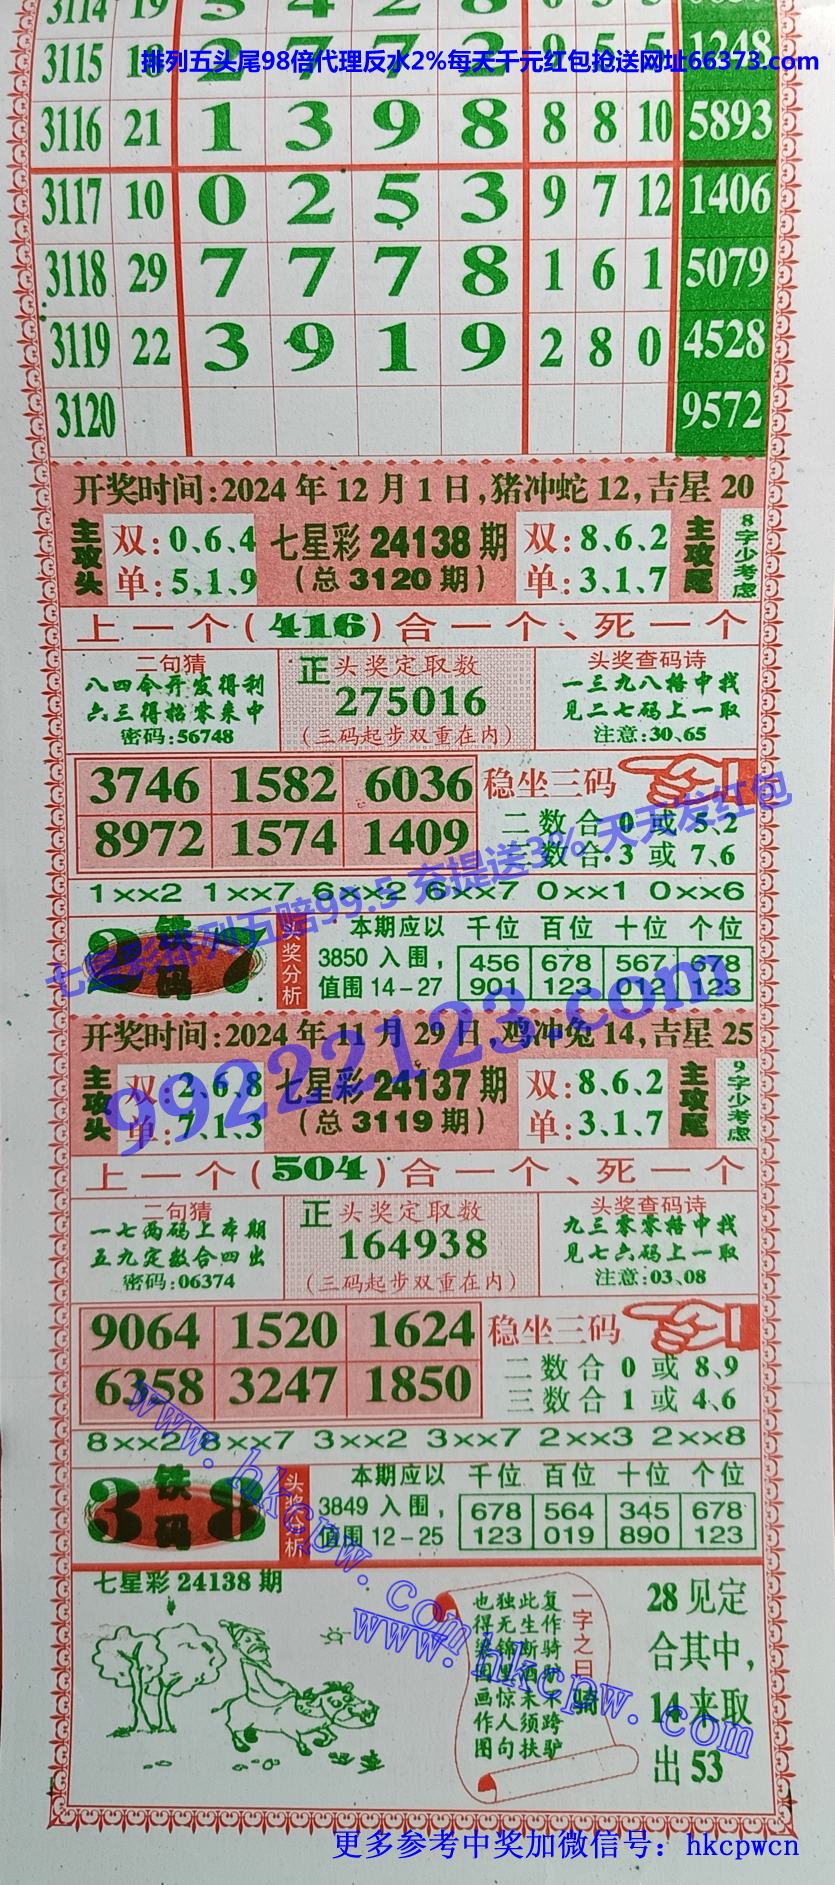 3114 19 5 4 2 8
3115 18 2 7 7 2 9 5 5 1248
排列五头尾98倍代理反水2%每天千元红包抢送网址66373.com
3116 21 1 3 9 8 8 8 10 5893
3117 10 0 2 5 3 9 7 12 1406
3118 29 7 7 7 8 1 6 1 5079
3119 22 3 9 1 9 2 8 0 4528
3120 9572
开奖时间:2024年12月1日,猪冲蛇12,吉星20
主攻头 双:0、6、4 七星彩24138期 双:8、6、2 主攻尾 8字少考虑
单:5、1、9 (总3120期) 单:3、1、7
上一个(416)合一个、死一个
二句猜 正 头奖定取数 头奖查码诗
八四今开发得利 275016 一三九八格中找
六三得招零来中 见二七码上一取
密码:56748 (三码起步双重在内) 注意:30、65
3746 1582 6036 稳坐三码
8972 1574 1409 二数合0或5、2
三数合3或7、6
七星彩排列五赔99.5 充提送3% 天天发红包
1××2 1××7 6××2 6××7 0××1 0××6
铁码 头奖分析 本期应以 千位 百位 十位 个位
3850入围, 456 678 567 678
值围14-27 901 123 012 123
99222123.com
开奖时间:2024年11月29日,鸡冲兔14,吉星25
主攻头 双:2、6、8 七星彩24137期 双:8、6、2 主攻尾 9字少考虑
单:7、1、3 (总3119期) 单:3、1、7
上一个(504)合一个、死一个
二句猜 正 头奖定取数 头奖查码诗
一七两码上本期 164938 九三零零格中找
五九定数合四出 见七六码上一取
密码:06374 (三码起步双重在内) 注意:03、08
9064 1520 1624 稳坐三码
6358 3247 1850 二数合0或8、9
三数合1或4、6
8××2 8××7 3××2 3××7 2××3 2××8
3 铁码 8 头奖分析 本期应以 千位 百位 十位 个位
3849入围, 678 564 345 678
值围12-25 123 019 890 123
www.hkcpw.com
www.hkcpw.com
七星彩24138期
一字之曰:骑
复作骑驴不跨驴
此生断酒未须扶
独无锦里惊人句
也得梁园画作图
28见定
合其中,
14来取
出53
更多参考中奖加微信号：hkcpwcn